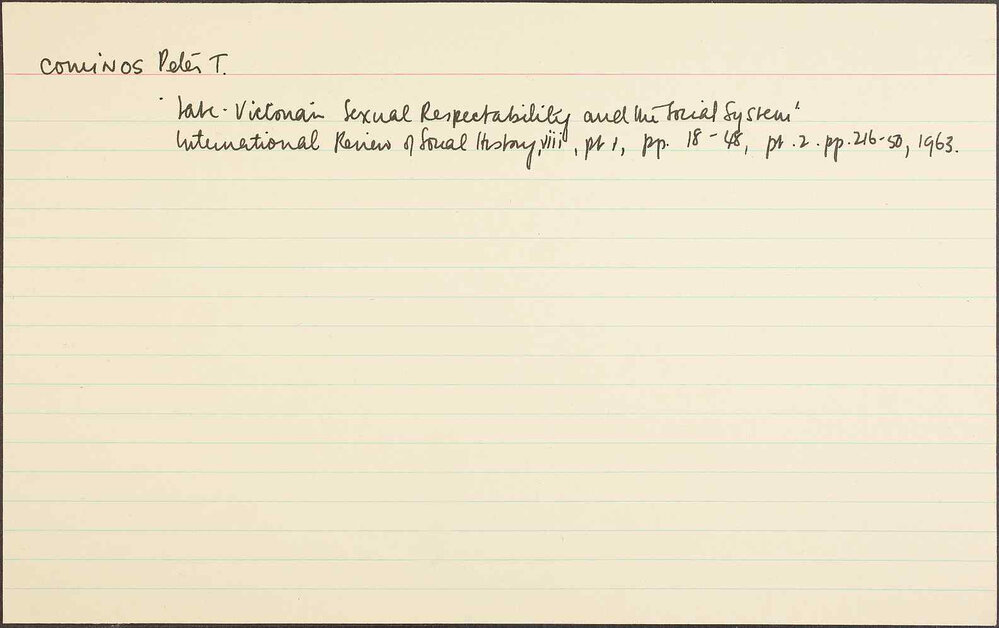 COMINOS Peter T.
'Late-Victorian Sexual Respectability and the Social System'
International Review of Social History, viii, pt 1, pp. 18-48, pt.2.pp.216-50, 1963.